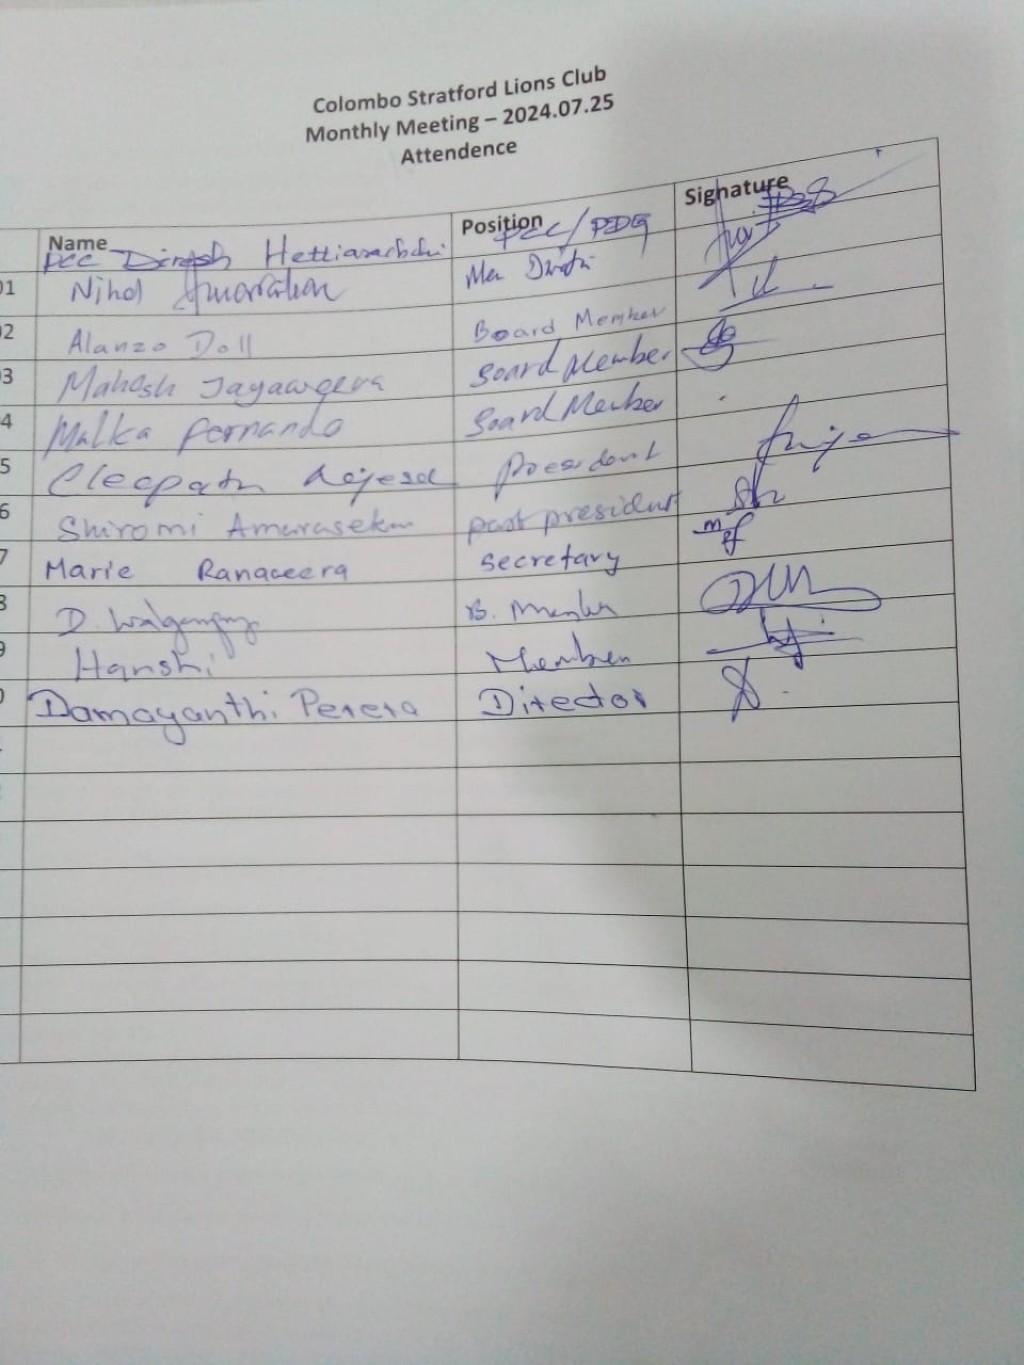 Colombo Stratford Lions Club
Monthly Meeting – 2024.07.25
Attendence
Name Position Signature
PCC Dinesh Hettiarachchi PCC/PDG
01 Nihal
02 Alanzo Doll Board Member
03 Mahesh Jayaweera Board Member
04 Malka Fernando Board Member
5 President
6 Shiromi Amarasekara past president
7 Marie Ranaweera Secretary
8 D. B. Member
9 Hanshi Member
0 Damayanthi Perera Director